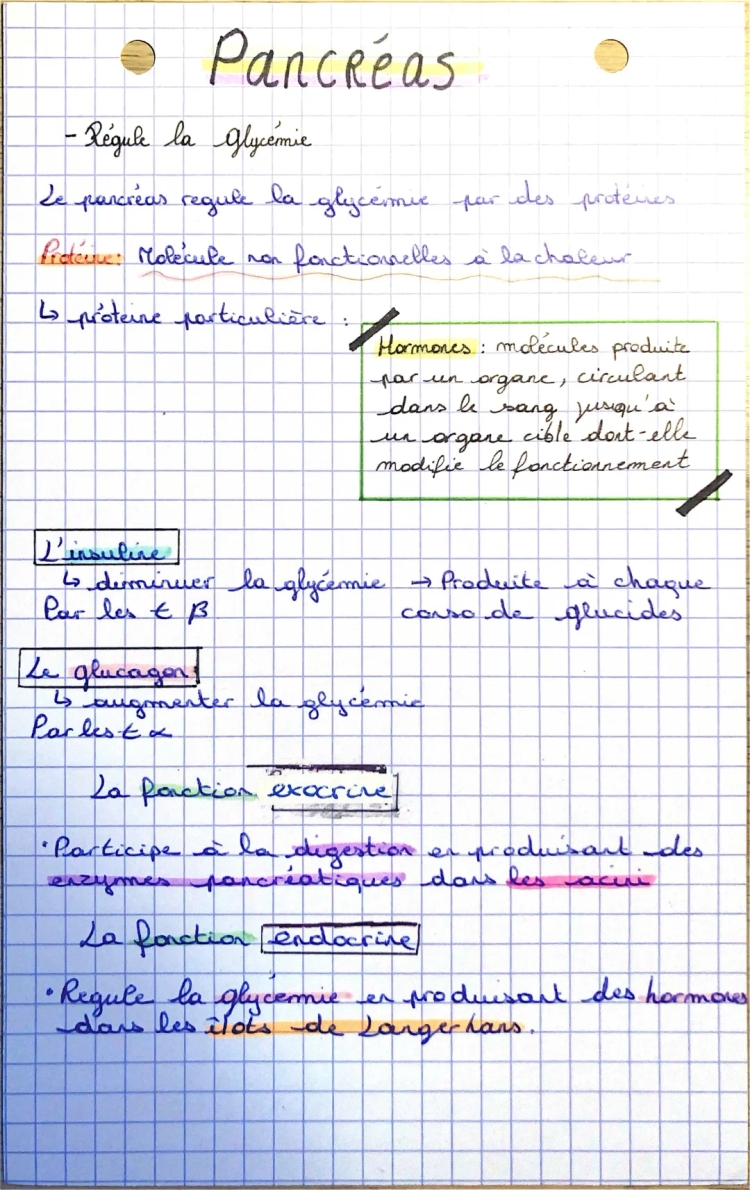 Pancréas
- Régule la glycémie
Le pancréas regule la glycémie par des protéines
Protéine: Molécule non fonctionnelles à la chaleur
↳ protéine particulière :
Hormones : molécules produite
par un organe, circulant
dans le sang jusqu'à
un organe cible dont-elle
modifie le fonctionnement
L'insuline
↳ diminuer la glycémie → Produite à chaque
Par les ȼ β conso de glucides
Le glucagon:
↳ augmenter la glycémie
Par les ȼ α
La fonction exocrine
• Participe à la digestion en produisant des
enzymes pancréatiques dans les acini
La fonction endocrine
• Regule la glycémie en produisant des hormones
dans les îlots de Langerhans.